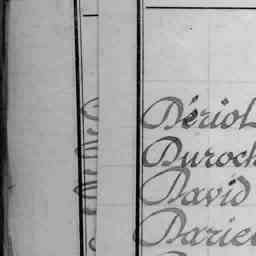 Dériot
Duroch
David
Darie